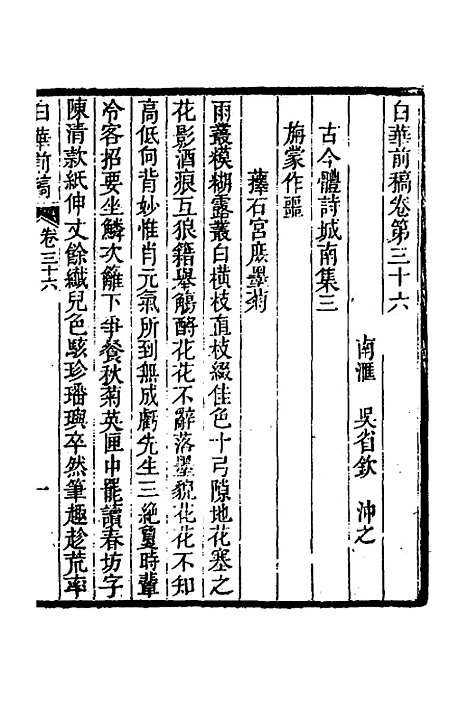 白華前稿卷第三十六
南滙 吳省欽 沖之
古今體詩城南集三
旃蒙作噩
蘀石宮庶墨菊
雨叢模糊露叢白橫枝直枝綴佳色十弓隙地花塞之
花影酒痕互狼籍舉觴酹花花不辭落墨貌花花不知
高低何背妙惟肖元氣所到無成虧先生三絶夐時輩
冷客招要坐鱗次籬下爭餐秋菊英匣中罷讀春坊字
陳清款紙伸丈餘纎兒色駭珍璠璵卒然筆趣趁荒率
白華前稿 卷三十六 一